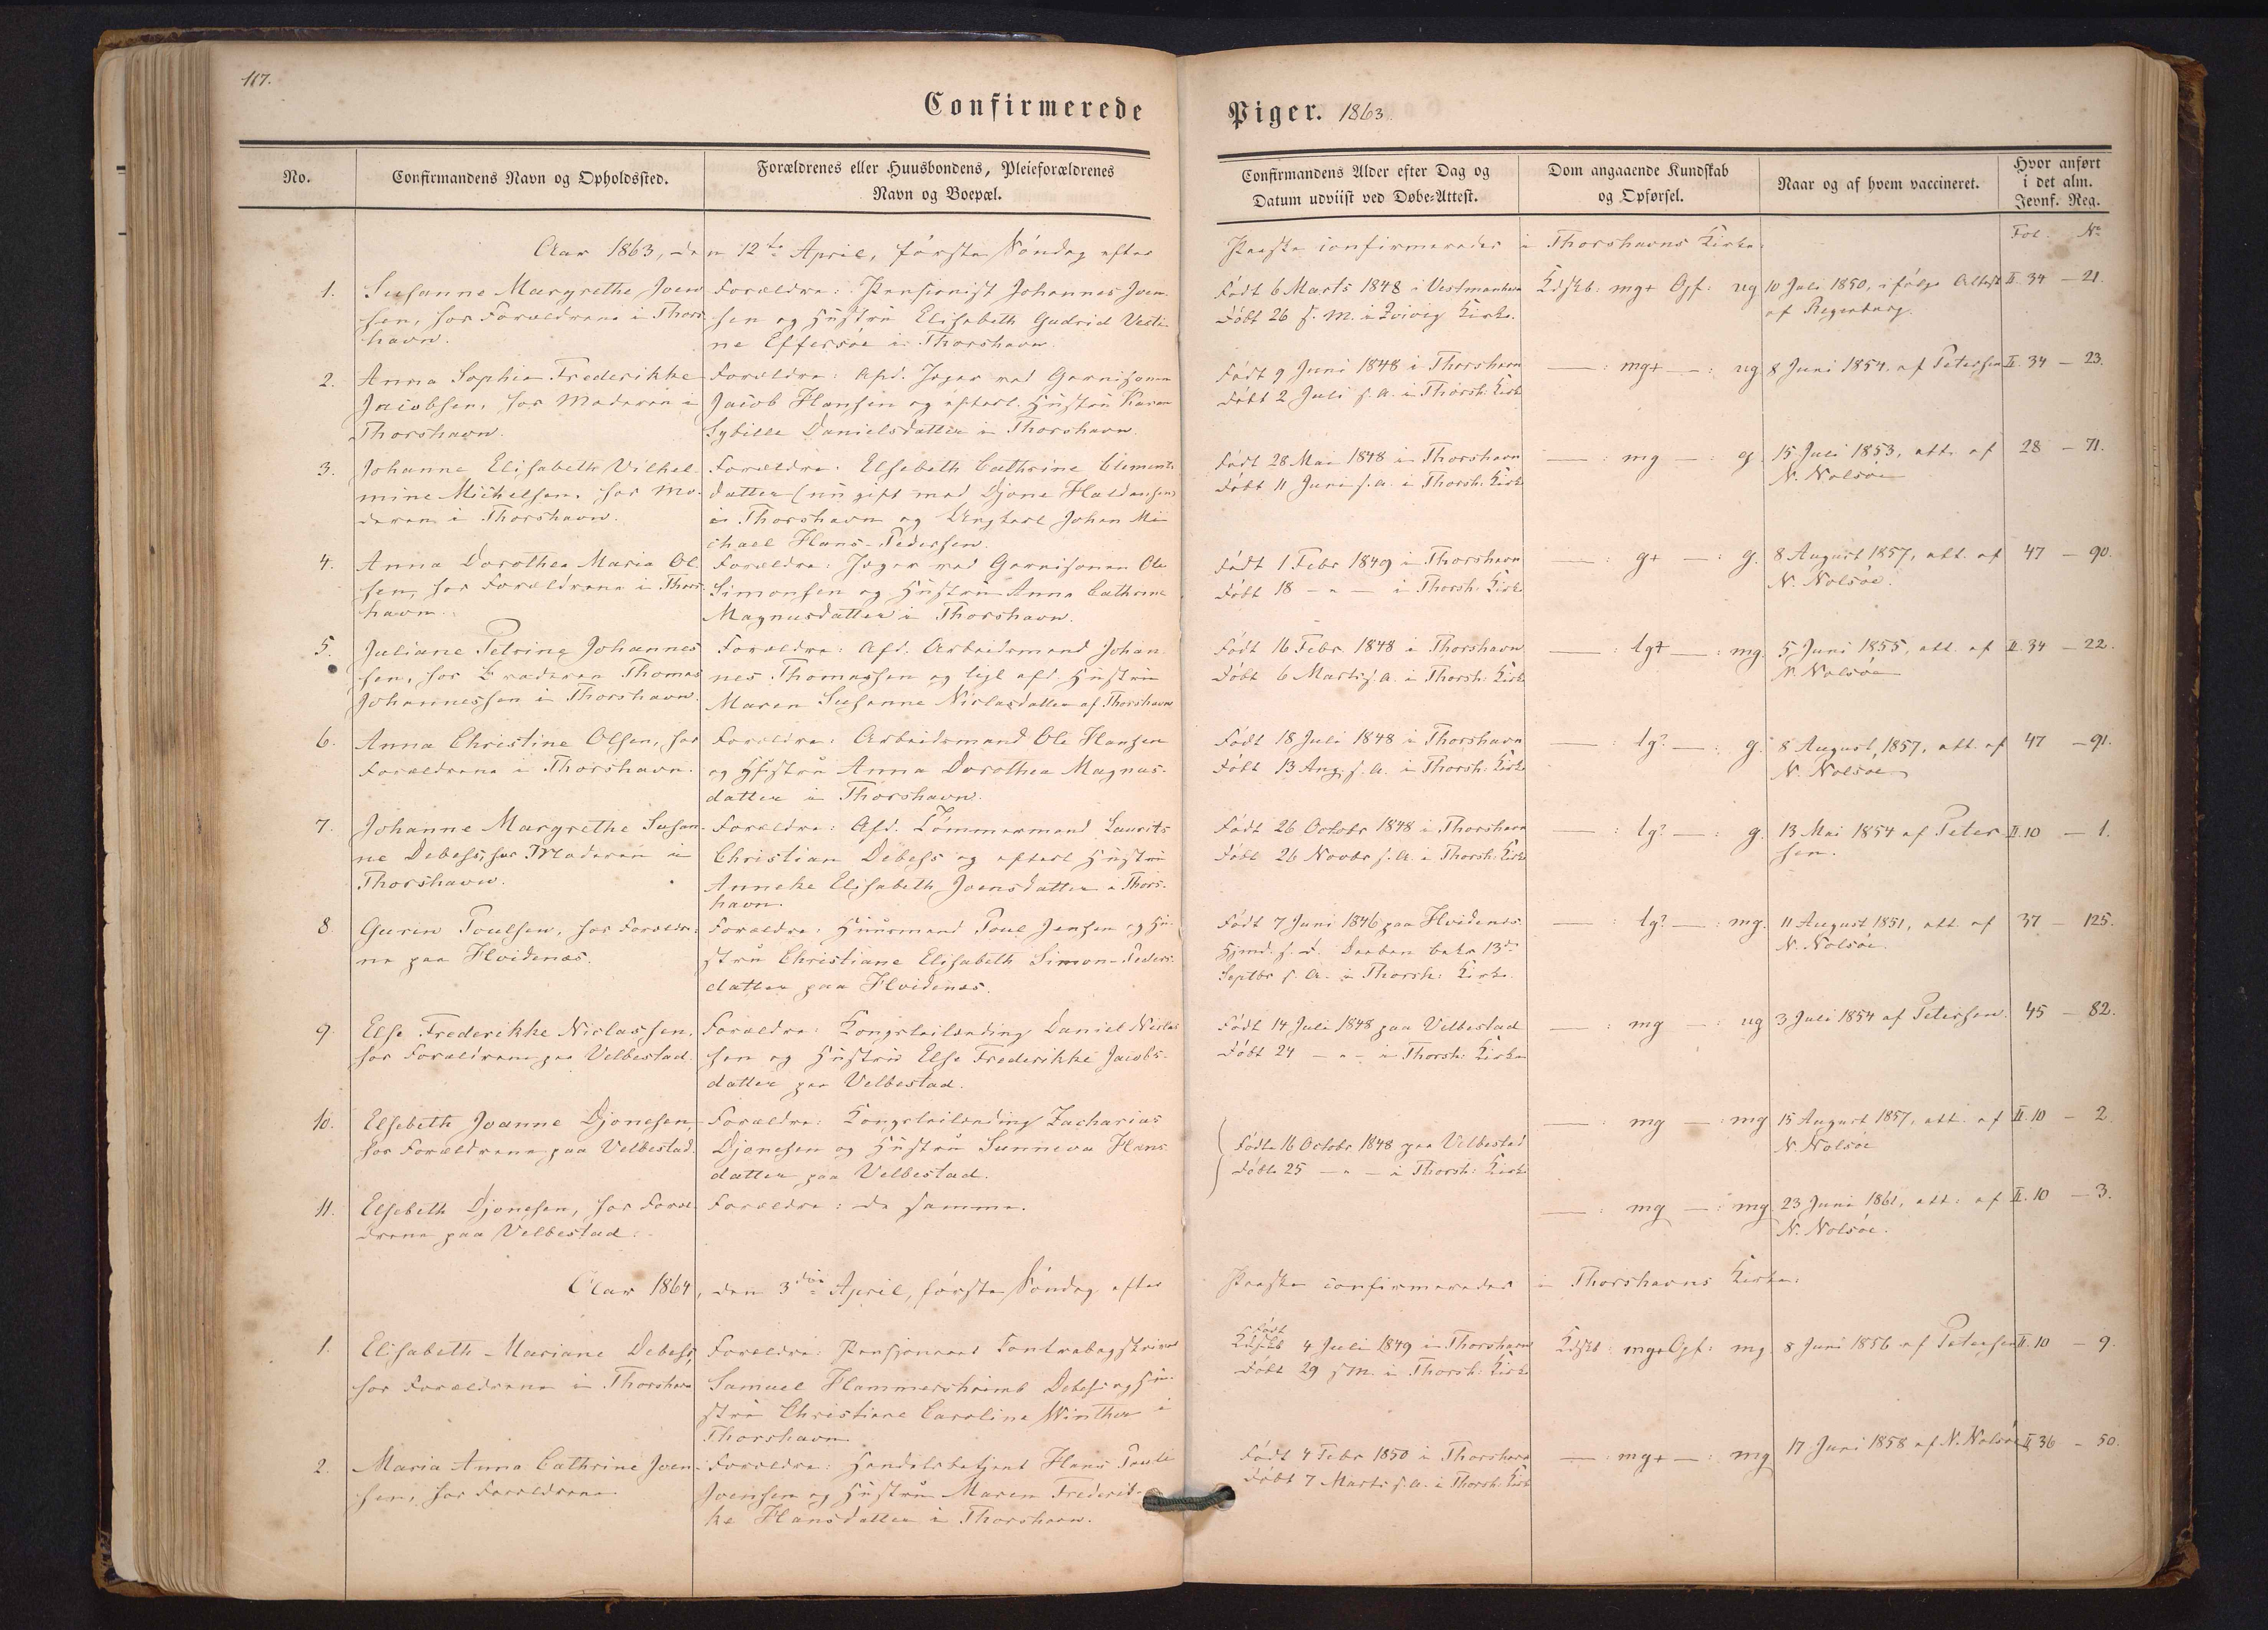 117.
Confirmerede Piger. 1863.
No.
Confirmandens Navn og Opholdssted.
Forældrenes eller Huusbondens, Pleieforældrenes
Navn og Boepæl.
Confirmandens Alder efter Dag og
Datum udviist ved Døbe-Attest.
Dom angaaende Kundskab
og Opførsel.
Naar og af hvem vaccineret.
Hvor anført
i det alm.
Jevnf. Reg.
Fol. No
Aar 1863, den 12te April, første Søndag efter Paaske confirmeredes i Thorshavns Kirke:
1.
Susanne Margrethe Joen
sen, hos Forældrene i Thors
havn.
Forældre: Pensionist Johannes Joen
sen og Hustru Elisabeth Gudrid Vesti
ne Effersöe i Thorshavn.
Født 6 Marts 1848 i Vestmanhavn
Døbt 26 s. M. i Qvivig Kirke.
Kdskb: mg+ Opf: ug
10 Juli 1850, ifølge Attest
af Regenburg.
II. 34 - 21.
2.
Anna Sophie Frederikke
Jacobsen, hos Moderen i
Thorshavn.
Forældre: Afd. Jæger ved Garnisonen
Jacob Hansen og efterl. Hustru Karen
Sybille Danielsdatter i Thorshavn.
Født 9 Juni 1848 i Thorshavn
Døbt 2 Juli s. A. i Thorsh: Kirke
— : mg+ — : ug
8 Juni 1854, af Petersen
II. 34 - 23.
3.
Johanne Elisabeth Vilhel-
mine Michelsen, hos Mo-
deren i Thorshavn.
Forældre: Elsebeth Cathrine Clements
datter (nu gift med Djone Haldansen)
i Thorshavn og Ungkarl Johan Mi
chael Hans-Pedersen.
Født 28 Mai 1848 i Thorshavn
Døbt 11 Juni s. A. i Thorsh: Kirke
— : mg — : g
15 Juli 1853, att. af
N. Nolsöe
28 - 71.
4.
Anna Dorothea Maria Ol
sen, hos Forældrene i Thors-
havn.
Forældre: Jæger ved Garnisonen Ole
Simonsen og Hustru Anna Cathrine
Magnusdatter i Thorshavn.
Født 1 Febr 1849 i Thorshavn
Døbt 18 - " - i Thorsh: Kirke
— : g+ — : g.
8 August 1857, att. af
N. Nolsöe.
47 - 90.
5.
Juliane Petrine Johannes
sen, hos Broderen Thomas
Johannessen i Thorshavn.
Forældre: Afd. Arbeidsmand Johan
nes Thomassen og ligl. afd. Hustru
Maren Susanne Niclasdatter af Thorshavn
Født 16 Febr. 1848 i Thorshavn
Døbt 6 Marts s. A. i Thorsh: Kirke
— : tg+ — : mg.
5 Juni 1855, att. af
N. Nolsöe
II. 34 - 22.
6.
Anna Christine Olsen, hos
Forældrene i Thorshavn.
Forældre: Arbeidsmand Ole Hansen
og Hustru Anna Dorothea Magnus-
datter i Thorshavn.
Født 18 Juli 1848 i Thorshavn
Døbt 13 Aug. s. A. i Thorsh: Kirke
— : tg? — : g.
8 August 1857, att. af
N. Nolsöe
47 - 91.
7.
Johanne Margrethe Susan-
ne Debess, hos Moderen i
Thorshavn.
Forældre: Afd. Tømmermand Laurits
Christian Debess og efterl. Hustru
Anneke Elisabeth Joensdatter i Thors-
havn.
Født 26 Octobr 1848 i Thorshavn
Døbt 26 Novbr s. A. i Thorsh: Kirke
— : tg? — : g.
13 Mai 1854 af Peter
sen.
II. 10 - 1.
8.
Guren Poulsen, hos Forældre-
ne paa Hvidenæs.
Forældre: Huusmand Poul Jensen og Hu-
stru Christiane Elisabeth Simon-Peders
datter paa Hvidenæs.
Født 7 Juni 1846 paa Hvidenæs.
Hjmd. s. D. Daaben bekr. 13de
Septbr s. A. i Thorsh: Kirke.
— : tg? — : mg.
11 August 1851, att. af
N. Nolsöe.
37 - 125.
9.
Else Frederikke Niclassen,
hos Forældrene paa Velbestad.
Forældre: Kongsleilending Daniel Niclas
sen og Hustru Else Frederikke Jacobs-
datter paa Velbestad.
Født 14 Juli 1848 paa Velbestad
Døbt 24 - " - i Thorsh: Kirke
— : mg — : ug
3 Juli 1854 af Petersen.
45 - 82.
10.
Elsebeth Joanne Djonesen,
hos Forældrene paa Velbestad.
Forældre: Kongsleilending Zacharias
Djonesen og Hustru Sunneva Hans
datter paa Velbestad.
Født 16 Octobr 1848 paa Velbestad
Døbt 25 - " - i Thorsh: Kirke
— : mg — : mg
15 August 1857, att. af
N. Nolsöe
II. 10 - 2.
11.
Elsebeth Djonesen, hos Foræl
drene paa Velbestad.
Forældre: de samme.
— : mg — : mg
23 Juni 1861, att. af
N. Nolsöe.
II. 10 - 3.
Aar 1864, den 3die April, første Søndag efter Paaske confirmeredes i Thorshavns Kirke:
1.
Elisabeth-Mariane Debess,
hos Forældrene i Thorshavn
Forældre: Pensioneret Contrabogskriver
Samuel Hammershaimb Debess og Hu-
stru Christiane Caroline Winther i
Thorshavn.
Født
4 Juli 1849 i Thorshavn
Døbt 29 s. M. i Thorsh: Kirke
Kdskb: mg+ Opf: mg
8 Juni 1856 af Petersen
II. 10 - 9.
2.
Maria Anna Cathrine Joen-
sen, hos Forældrene
Forældre: Handelsbetjent Hans Poule
Joensen og Hustru Maren Frederik-
ke Hansdatter i Thorshavn.
Født 4 Febr 1850 i Thorshavn
Døbt 7 Marts s. A. i Thorsh: Kirke
— : mg+ — : mg
17 Juni 1858 af N. Nolsöe
II. 36 - 50.